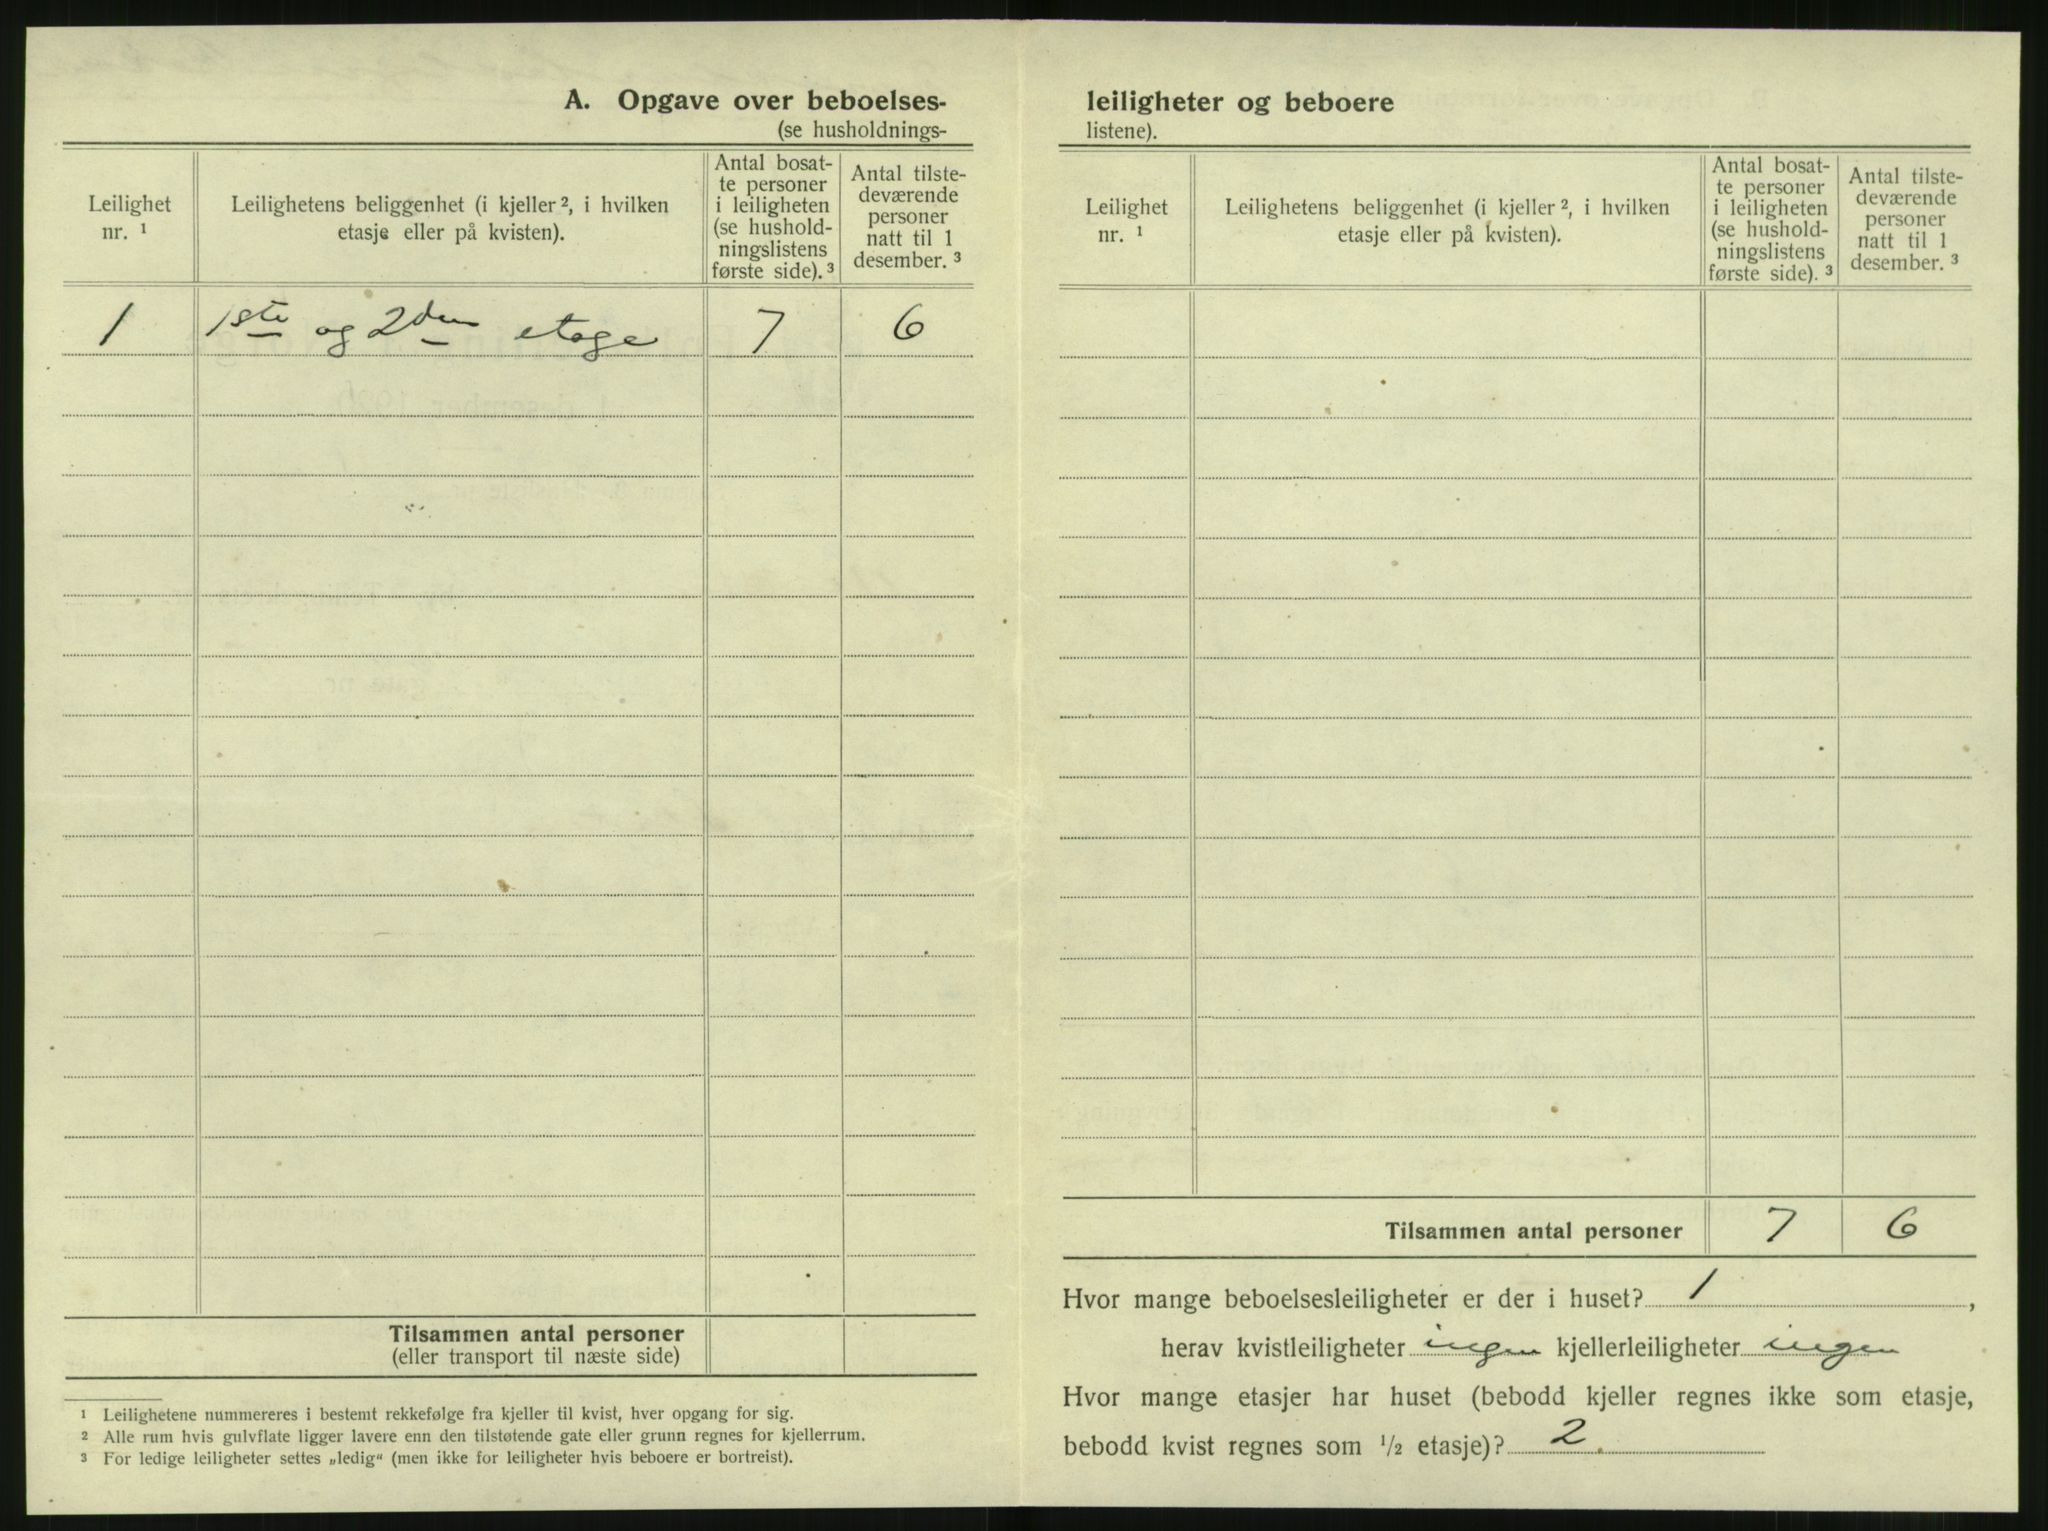 A. Opgave over beboelses-
(se husholdnings-
Leilighet
nr. 1
Leilighetens beliggenhet (i kjeller 2, i hvilken
etasje eller på kvisten).
Antal bosat-
te personer
i leiligheten
(se hushold-
ningslistens
første side). 3
Antal tilste-
deværende
personer
natt til 1
desember. 3
1 1ste og 2den etage 7 6
Tilsammen antal personer
(eller transport til næste side)
1 Leilighetene nummereres i bestemt rekkefølge fra kjeller til kvist, hver opgang for sig.
2 Alle rum hvis gulvflate ligger lavere enn den tilstøtende gate eller grunn regnes for kjellerrum.
3 For ledige leiligheter settes „ledig“ (men ikke for leiligheter hvis beboere er bortreist).
leiligheter og beboere
listene).
Leilighet
nr. 1
Leilighetens beliggenhet (i kjeller 2, i hvilken
etasje eller på kvisten).
Antal bosat-
te personer
i leiligheten
(se hushold-
ningslistens
første side). 3
Antal tilste-
deværende
personer
natt til 1
desember. 3
Tilsammen antal personer 7 6
Hvor mange beboelsesleiligheter er der i huset? 1,
herav kvistleiligheter ingen kjellerleiligheter ingen
Hvor mange etasjer har huset (bebodd kjeller regnes ikke som etasje,
bebodd kvist regnes som 1/2 etasje)? 2.